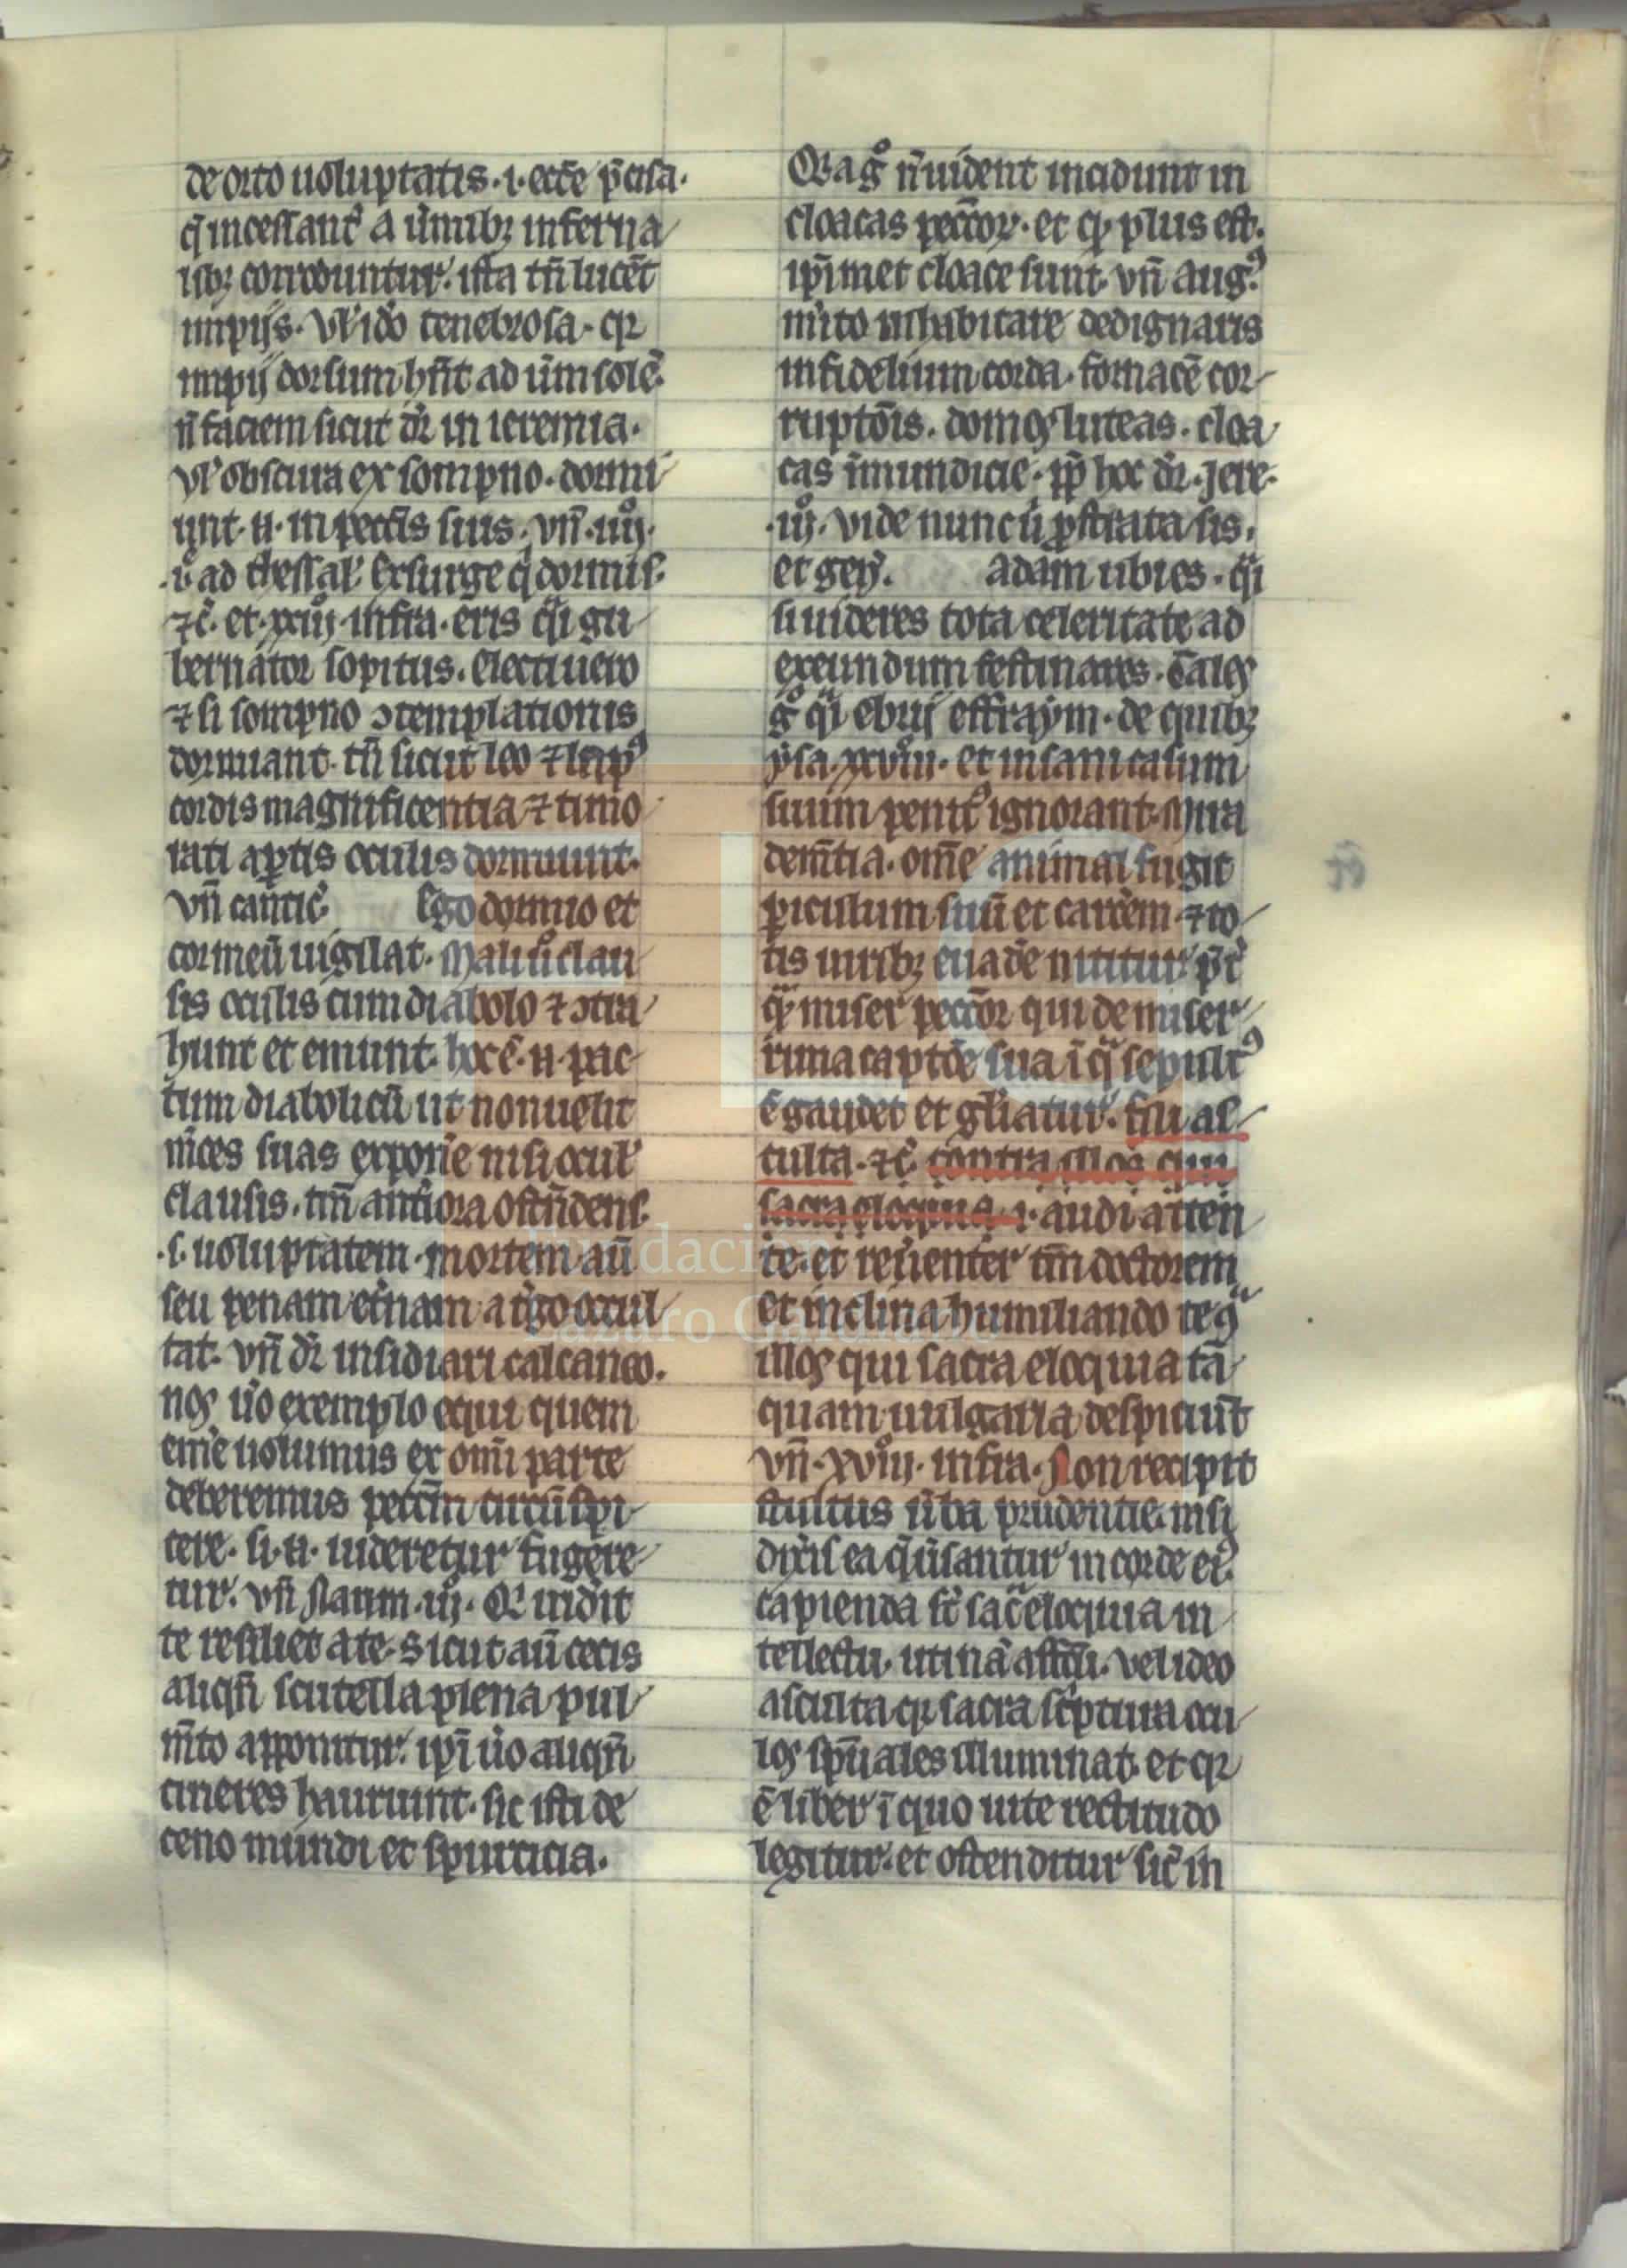 de orto uoluptatis .i. ecc̄e p̄cisa.
q̄ incessant᷑ a u͛mib; inferna
lib; corroduntur. ista tn̄ lucēt
impijs. Vl' iō tenebrosa. qꝛ
impij dorsum hn̄t ad ūm solē.
n̄ faciem sicut dr̄ in ieremia.
Vl' obscura ex sompno. dormi
unt .n. in pecc̄is suis. vn̄ .iiij.
.v. ad thessal'. Exsurge q̇ dormis.
⁊c̄. et .xxiij. infra. eris q̄i gu
bernator sopitus. Electi uero
⁊ si sompno ɔtemplationis
dormiant. tn̄ sicut leo ⁊ lepꝰ
cordis magnificentia ⁊ timo
rati aꝑtis oculis dormiunt.
vn̄ cantic̄. Ego dormio et
cor meū uigilat. Mali u͛o clau
sis oculis cum diabolo ⁊ ɔtra
hunt et emunt. hoc ē .n. pac
tum diabolicū ut non uelit
m̄ces suas exponē nisi ocul'
clausis. tm̄ anteriora ostn̄dens
.s. uoluptatem. mortem aū
seu penam et͛nam a t͛go occul
tat. vn̄ dr̄ insidiari calcaneo.
nos u͛o exemplo equi quem
em̄e uolumus ex omi parte
deberemus pecc̄m circūspi
cere. si .n. uideretur fugere
tur. vn̄ Naum .iij. Qi uid͛it
te resiliet a te. Sicut aū cecis
aliqn̄ scutella plena pul
m̄to apponitur. ip̄i u͛o aliqn̄
cineres hauriunt. sic isti de
ceno mundi et spurcicia.
Qꝛ a gͦ n̄ uident incidunt in
cloacas pecc̄oꝝ. et qd̄ plus est.
ip̄imet cloace sunt. vn̄ augꝰ.
m͛ito inhabitare dedignaris
infidelium corda. fornacē cor
ruptōis. domos luteas. cloa
cas īmundicie. ꝓp̄ hoc dr̄. Jere.
.iij. vide nunc u͛ ꝓstrata sis.
et gen̄. Adam ubi es. q̄i
si uideres tota celeritate ad
exeundum festinares. Tales
gͦ q̄i ebrij effraym. de quib;
ysa .xxviii. et insani casum
suum penitꝰ ignorant. Mira
dem̄tia. ōme animal fugit
ꝑiculum suū et carcēm. ⁊ to
tis uirib; euad͛e nititur. p̄t͛
qd̄ miser pecc̄or qui de miser
rima captōe sua ī q̄ sepultꝰ
ē gaudet et gl̄iatur. fili as
culta. ⁊c̄. contra illos qui
sacra eloquia .i. audi atten
te. et reu͛enter tm̄ doctorem
et inclina humiliando te ꝯͣ
illos qui sacra eloquia tā
quam uulgaria despiciūt
vn̄ .xviij. infra. Non recipit
stultus u͛ba prudentie. nisi
dix͛is ea q̄ u͛santur in corde eiꝰ.
capienda sc̄ sac̄ eloquia in
tellectu. utinā affc̄u. vel ideo
asculta qꝛ sacra sc̄ptura ocu
los sp̄uales illuminat. et qꝛ
ē liber ī quo uite rectitudo
legitur. et ostenditur sic̄ in
Fundación
Lázaro Galdiano